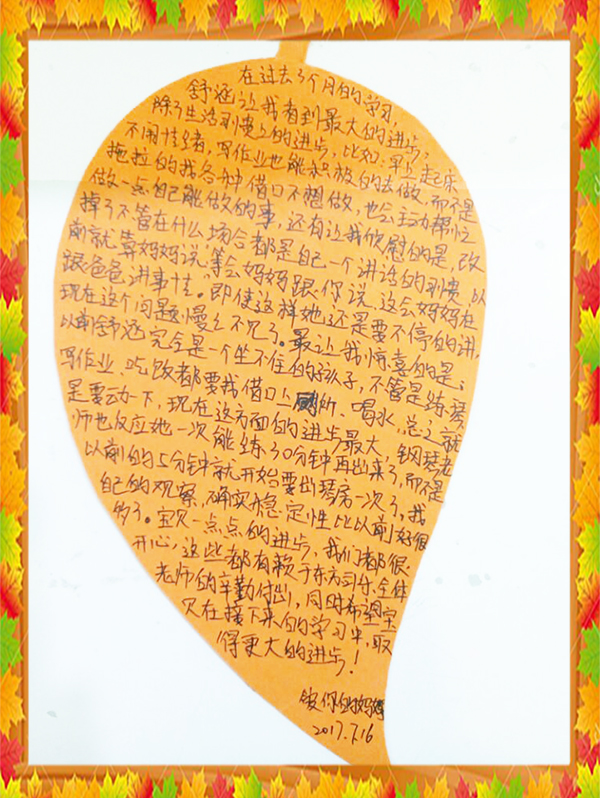 在过去3个月的学习
舒涵让我看到最大的进步,
除了生活习惯上的进步,比如:早上起床
不用情绪,写作业也能积极的去做,而不是
拖拉的找各种借口不想做,也会主动帮忙
做一点自己能做的事,还有让我欣慰的是,改
掉了不管在什么场合都是自己一个讲话的习惯,以
前就靠妈妈说,等会妈妈跟你说,这会妈妈在
跟爸爸讲事情。即使这样她还是要不停的讲,
现在这个问题慢慢不见了。最让我惊喜的是:
以前舒涵完全是一个坐不住的孩子,不管是练琴
写作业、吃饭都要找借口上厕所、喝水,总之就
是要动一下,现在这方面的进步最大,钢琴老
师也反应她一次能练30分钟再出来了,而不是
以前的5分钟就开始要出琴房一次了,我
自己的观察,确实稳定性比以前好很
多了。宝贝一点点的进步,我们都很
开心,这些都有赖于东方司丹全体
老师的辛勤付出,同时希望宝
贝在接下来的学习中,取
得更大的进步!
爱你的妈妈
2017.7.16